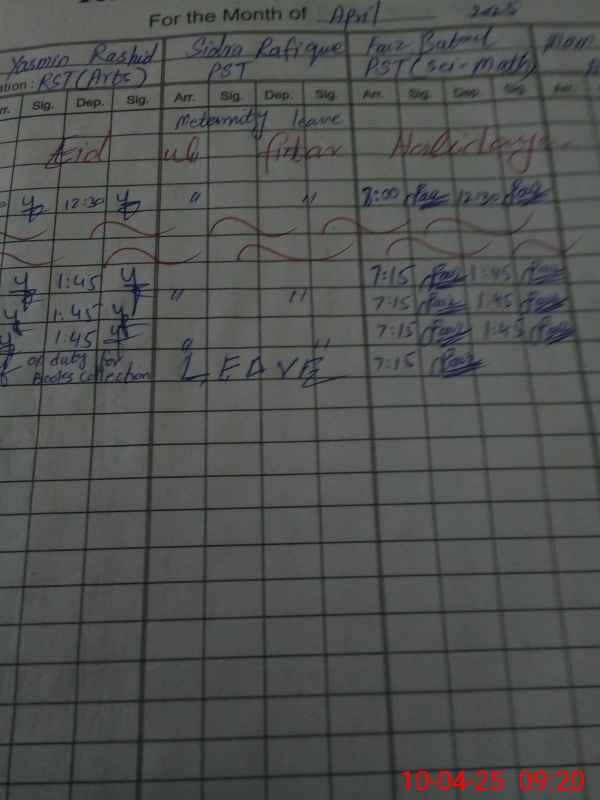 For the Month of April 2025
Yasmin Rashid Sidra Rafique Faiz
ation : RST (Arts) PST PST (Sci-Math)
rr. Sig. Dep. Sig. Arr. Sig. Dep. Sig. Arr. Sig. Dep. Sig.
Meternity leave
Eid ul fitar Holidays
12:30 " " 8:00 Faiz 12:30 Faiz
1:45 7:15 Faiz 1:45 Faiz
1:45 " " 7:15 Faiz 1:45 Faiz
1:45 " " 7:15 Faiz 1:45 Faiz
on duty for L E A V E 7:15 Faiz
Books Collection
10-04-25 09:20